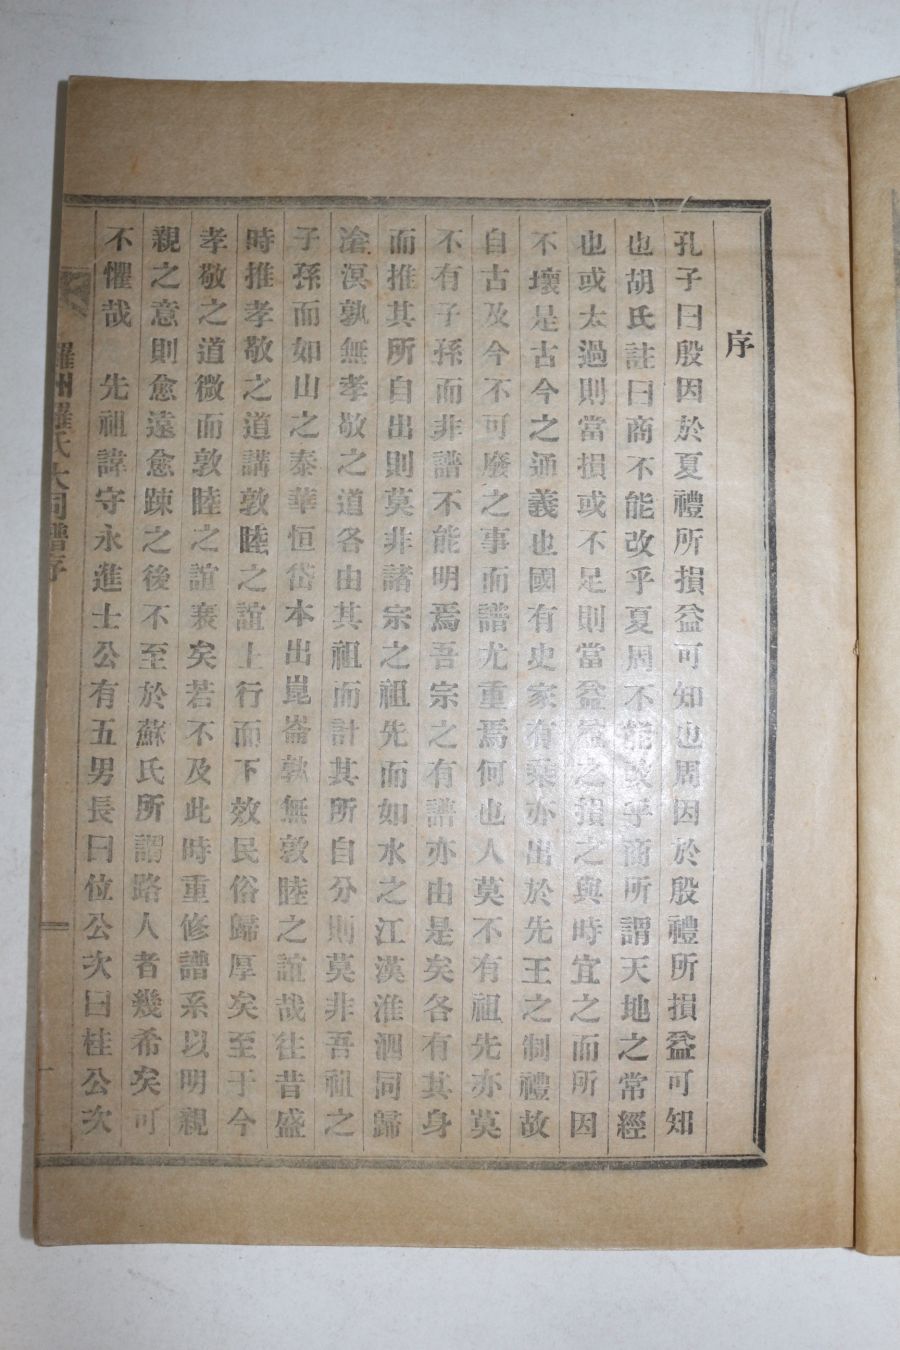 序
孔子曰殷因於夏禮所損益可知也周因於殷禮所損益可知
也胡氏註曰商不能改乎夏周不能改乎商所謂天地之常經
也或太過則當損或不足則當益益之損之與時宜之而所因
不壞是古今之通義也國有史家有乘亦出於先王之制禮故
自古及今不可廢之事而譜尤重焉何也人莫不有祖先亦莫
不有子孫而非譜不能明焉吾宗之有譜亦由是矣各有其身
而推其所自出則莫非諸宗之祖先而如水之江漢淮泗同歸
滄溟孰無孝敬之道各由其祖而計其所自分則莫非吾祖之
子孫而如山之泰華恒岱本出崑崙孰無敦睦之誼哉往昔盛
時推孝敬之道講敦睦之誼上行而下效民俗歸厚矣至于今
孝敬之道微而敦睦之誼衰矣若不及此時重修譜系以明親
親之意則愈遠愈踈之後不至於蘇氏所謂路人者幾希矣可
不懼哉 先祖諱守永進士公有五男長曰位公次曰桂公次
羅州羅氏大同譜序
一